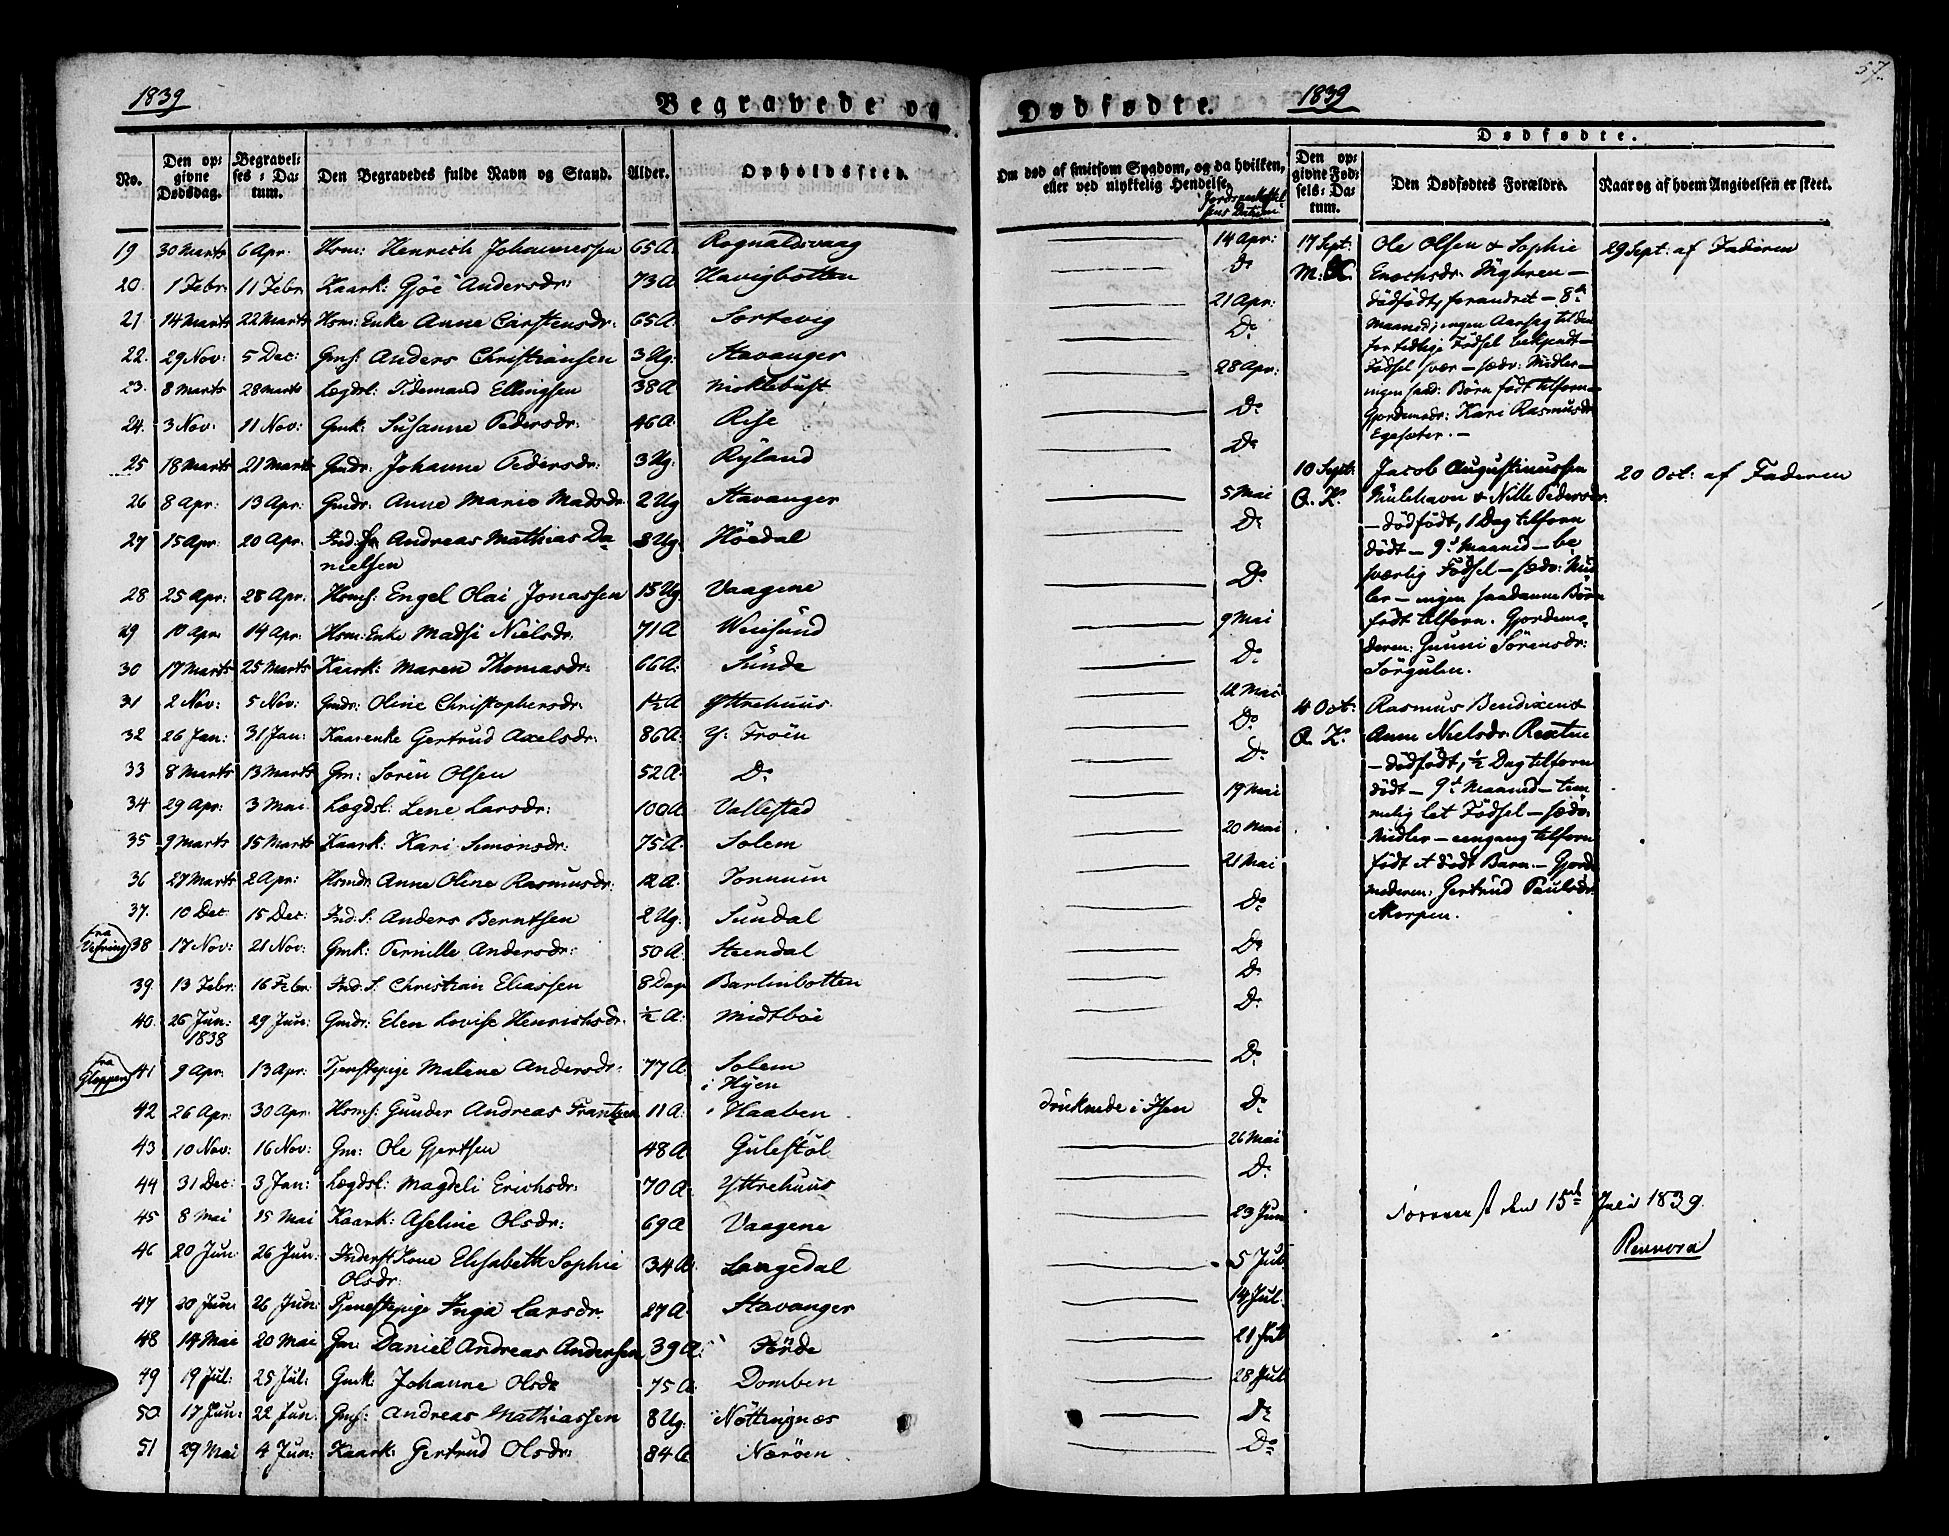 1839
Begravede og
No.
Den opgivne Dødsdag.
Begravelses-Datum.
Den Begravedes fulde Navn og Stand.
Alder.
Opholdssted.
19 30 Marts 6 Apr. Hsm: Henrich Johannessen 65 A. Rognaldsvaag
20. 1 Febr: 11 Febr Kaark: Gjöe Andersdr: 73 A Havigbotten
21 14 Marts 22 Marts Hsm: Enke Anne Carstensdr: 65 A. Sortevig
22. 29 Nov: 5 Dec: Gms: Anders Christiansen 3 Ug. Stavanger
23. 8 Marts 28 Marts Lægdsl: Tidemand Ellingsen 38 A Micklebust
24. 3 Nov: 11 Nov: Gmk: Susanne Pedersdr: 46 A. Rise
25 18 Marts 21 Marts Gmdr: Johanne Pedersdr: 3 Ug: Ryland
26 8 Apr: 13 Apr: Gmdr: Anne Marie Madsdr 2 Ug Stavanger
27 15 Apr: 20 Apr: Ind: Andreas Mathias Da-
nielsen 8 Ug. Höedal
28 25 Apr: 28 Apr: Hsms: Engel Olai Jonassen 15 Ug. Vaagene
29 10 Apr: 14 Apr: Hsm: Enke Madsi Nielsdr: 71 A Weisund
30 17 Marts 25 Marts Kaark: Maren Thomasdr: 66 A: Sunde
31 2 Nov: 5 Nov: Gmdr: Oline Christophersdr: 1½ A Yttrehuus
32 26 Jan: 31 Jan: Kaarenke Gertrud Axelsdr: 86 A. Y: Fröen
33 8 Marts 13 Marts Gm: Sören Olsen 52 A. Do
34 29 Apr: 3 Mai Lægdsl: Lene Larsdr: 100 A Vallestad
35 9 Marts 15 Marts Kaark: Kari Simonsdr: 75 A. Solem
36 27 Marts 2 Apr: Hsmdr Anne Oline Rasmusdr: 12 A. Tonuum
37. 10 Dec 15 Dec: Ind: S: Anders Berntsen 2 Ug. Sundal
fra
Vefring
38 17 Nov: 21 Nov: Gmk: Pernille Andersdr: 50 A. Steendal
39 13 Febr: 16 Febr: Ind: S. Christian Eliassen 8 Dage Barlinbotten
40. 26 Jun: 29 Jun: Gmdr: Elen Lovise Henrichsdr. ½ A: Midtböe
1838
fra
Gloppen
41 9 Apr: 13 Apr: Tjenstepige Malene Andersdr: 77 A. Solem
i Hyen
42 26 Apr: 30 Apr: Hsms: Gunder Andreas Frantzen 11 A. Haaben
43 10 Nov: 16 Nov: Gm: Ole Gjertsen 48 A Gulestöl
44 31 Dec: 3 Jan: Lægdsl: Magdeli Erichsdr: 70 A. Yttrehuus
45 8 Mai 15 Mai Kaark: Aseline Olsdr: 69 A Vaagene
46 20 Jun 26 Jun: Inderst Kone Elisabeth Sophie
Olsdr: 34 A. Langedal
47 20 Jun: 26 Jun: Tjenestepige Inga Larsdr. 27 A. Stavanger
48 14 Mai 20 Mai Gm: Daniel Andreas Andersen 39 A: Förde
49 19 Jul: 25 Jul: Gmk: Johanne Olsdr 75 A: Domben
50 17 Jun: 22 Jun: Gms: Andreas Mathiassen 8 Ug: Nöttingnæs
51 29 Mai 4 Jun: Kaark: Gertrud Olsdr: 84 A Naröen
57.
Dødfødte.
1839
Om død af smitsom Sygdom, og da hvilken,
eller ved ulykkelig Hendelse.
Jordpaakastel-
sens Datum
Dødfødte.
Den opgivne Fødsels-Datum.
Den Dødfødtes Forældre.
Naar og af hvem Angivelsen er skeet.
14 Apr:
Do
21 Apr:
Do
28 Apr:
Do
Do
5 Mai
Do
Do
9 Mai
Do
12 Mai
Do
Do
19 Mai
20 Mai
21 Mai
Do
Do
Do
Do
Do
druknede i Isen Do
26 Mai
Do
23 Jun
5 Jul:
14 Jul:
21 Jul
28 Jul
Do
Do
17 Sept: Ole Olsen & Sophie 29 Sept: af Faderen
M: K. Enochsdr.
dödfödt, forandret – 8de
Maaned; ingen Aarsag til den
fortidlige Födsel bekjendt –
Födsel svær – sædv: Midler –
ingen saad: Börn födt tilforn –
Gjordemdr: Kari Rasmusdr
Egesæter. –
10 Sept: Jacob Augustinussen 20 Oct: af Faderen
Q. K. & Nille Pedersdr:
– dödfödt, 1 Dag tilforn
död – 9de Maaned – be-
sværlig Födsel – sædv: Mid-
ler – ingen saadanne Börn
födt tilforn. Gjordemo-
deren: Gunni Sörensdr:
Sörgulen.
4 Oct: Rasmus Bendixen &
Q. K. Anne Nielsdr. Rextin
– dödfödt, ½ Dag tilforn
död – 9de Maaned – tem-
melig let Födsel – sædv:
Midler – eengang tilforn
födt et dödt Barn. – Gjord-
moderen: Gertrud Paulsdr
Norpen.
den 15de Juli 1839.